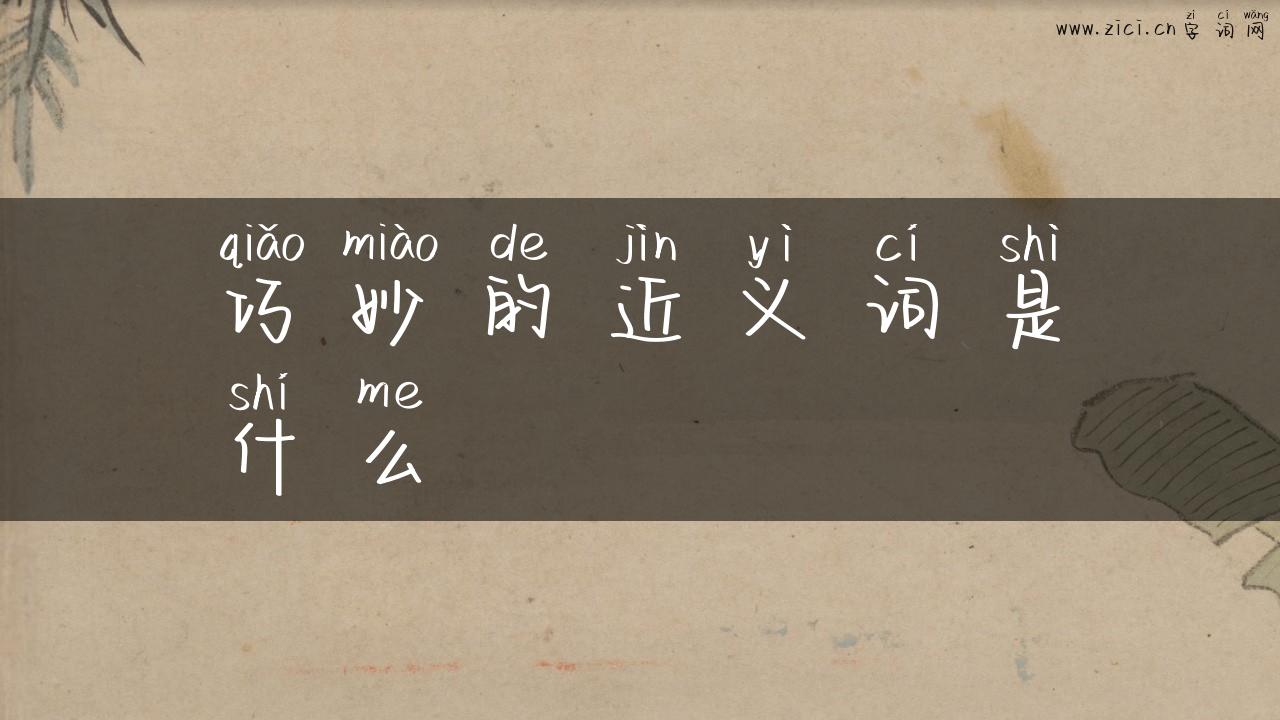 zì cí wǎng
www.zici.cn 字词网
qiǎo miào de jìn yì cí shì
巧妙的近义词是
shí me
什么